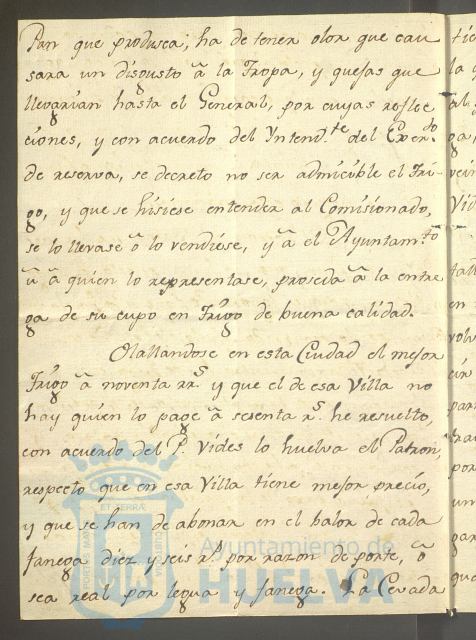 Pan que produsca; ha de tener olor que cau
sara un disgusto â la Tropa, y quejas que
llegarian hasta el General, por cuyas reflec
ciones, y con acuerdo del Yntend.te del Exer.do
de reserva, se decreto no ser admicible el Tri-
go, y que se hisiese entender al Comisionado,
se lo llevase ô lo vendiése, y â el Ayuntam.to
û â quien lo representase, proseda â la entre
ga de su cupo en Trigo de buena calidad.
Hallandose en esta Ciudad el mejor
Trigo â noventa rr.s y que el de esa Villa no
hay quien lo page â sesenta r.s he resuelto,
con acuerdo del P. Vides lo huelva el Patron,
respecto que en esa Villa tiene mejor precio,
y que se han de abonar en el balor de cada
fanega diez y seis r.s por razon de porte, ô
sea real por legua y fanega. La Cevada
Ayuntamiento de
HUELVA